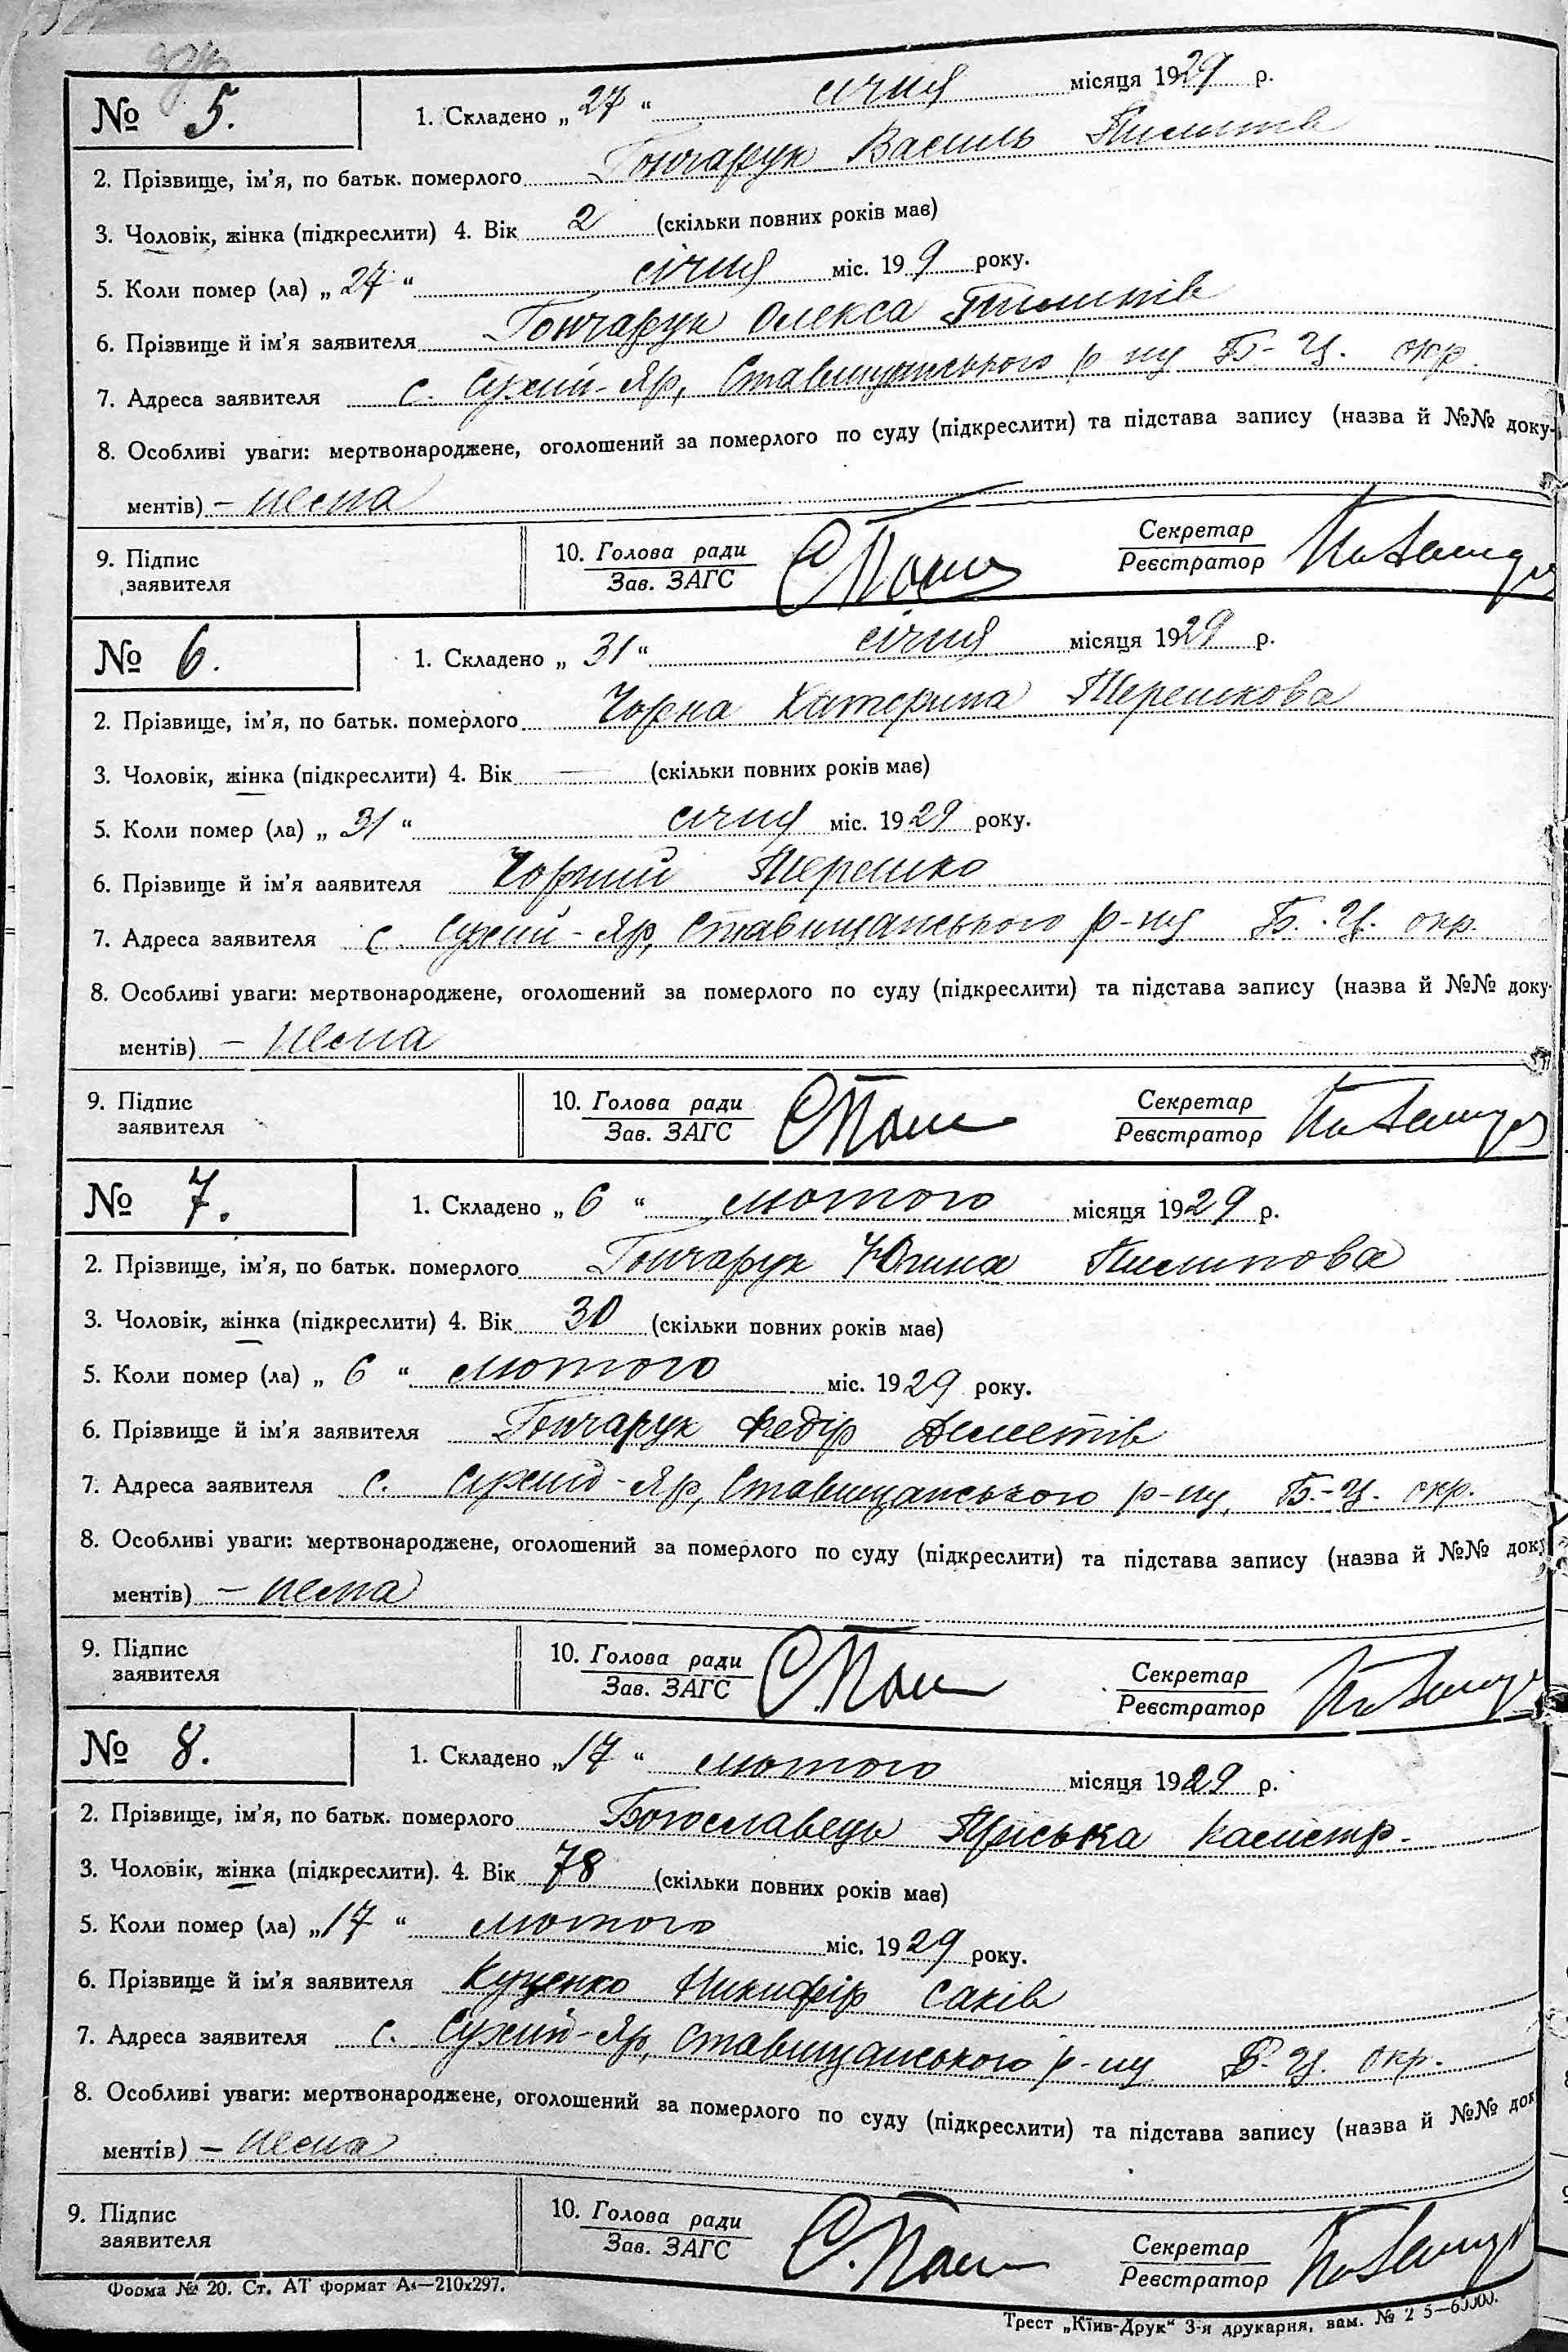 № 5.
1. Складено „ 27 “ січня місяця 1929 р.
2. Прізвище, ім'я, по батьк. померлого Гончарук Василь Пилипів
3. Чоловік, жінка (підкреслити) 4. Вік 2 (скільки повних років має)
5. Коли помер (ла) „ 27 “ січня міс. 19 9 року.
6. Прізвище й ім'я заявителя Гончарук Олекса Пилипів
7. Адреса заявителя с. Сухий-Яр, Ставищанського р-ну Б-Ц. окр.
8. Особливі уваги: мертвонароджене, оголошений за померлого по суду (підкреслити) та підстава запису (назва й №№ доку-
ментів) – нема
9. Підпис заявителя
10. Голова ради
Зав. ЗАГС
Секретар
Реєстратор
№ 6.
1. Складено „ 31 “ січня місяця 1929 р.
2. Прізвище, ім'я, по батьк. померлого Чорна Катерина Терешкова
3. Чоловік, жінка (підкреслити) 4. Вік — (скільки повних років має)
5. Коли помер (ла) „ 31 “ січня міс. 1929 року.
6. Прізвище й ім'я заявителя Чорний Терешко
7. Адреса заявителя с. Сухий-Яр, Ставищанського р-ну Б.-Ц. окр.
8. Особливі уваги: мертвонароджене, оголошений за померлого по суду (підкреслити) та підстава запису (назва й №№ доку-
ментів) – нема
9. Підпис заявителя
10. Голова ради
Зав. ЗАГС
Секретар
Реєстратор
№ 7.
1. Складено „ 6 “ лютого місяця 1929 р.
2. Прізвище, ім'я, по батьк. померлого Гончарук Югина Пилипова
3. Чоловік, жінка (підкреслити) 4. Вік 30 (скільки повних років має)
5. Коли помер (ла) „ 6 “ лютого міс. 1929 року.
6. Прізвище й ім'я заявителя Гончарук Федір
7. Адреса заявителя с. Сухий-Яр, Ставищанського р-ну, Б.-Ц. окр.
8. Особливі уваги: мертвонароджене, оголошений за померлого по суду (підкреслити) та підстава запису (назва й №№ доку
ментів) – нема
9. Підпис заявителя
10. Голова ради
Зав. ЗАГС
Секретар
Реєстратор
№ 8.
1. Складено „ 17 “ лютого місяця 1929 р.
2. Прізвище, ім'я, по батьк. померлого Богославець Пріська Калістр.
3. Чоловік, жінка (підкреслити). 4. Вік 78 (скільки повних років має)
5. Коли помер (ла) „ 17 “ лютого міс. 1929 року.
6. Прізвище й ім'я заявителя Куценко Никифір Саків
7. Адреса заявителя с. Сухий-Яр, Ставищанського р-ну Б-Ц. окр.
8. Особливі уваги: мертвонароджене, оголошений за померлого по суду (підкреслити) та підстава запису (назва й №№ док
ментів) – нема
9. Підпис заявителя
10. Голова ради
Зав. ЗАГС
Секретар
Реєстратор
Форма № 20. Ст. АТ формат А4—210x297.
Трест „Київ-Друк“ 3-я друкарня, зам. №